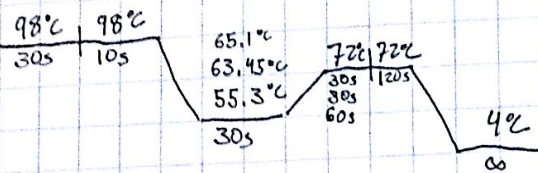 98°C 98°C
30s 10s
65.1°C
63.45°C
55.3°C
30s
72°C 72°C
30s 120s
30s
60s
4°C
∞